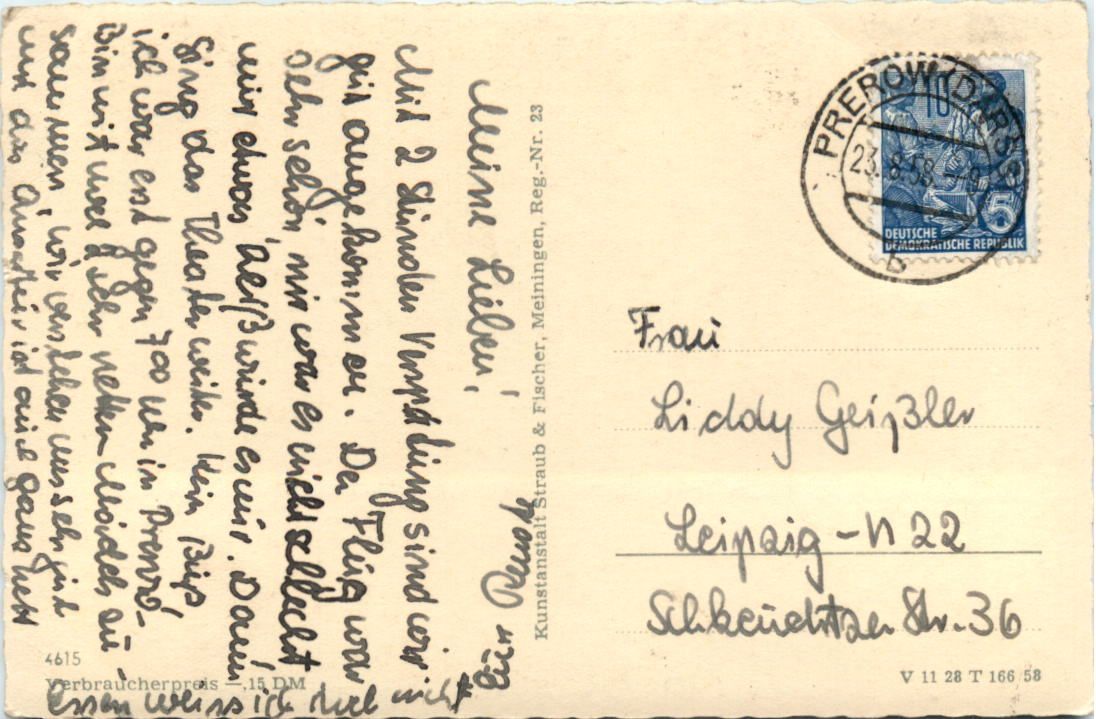 Meine Lieben!
Mit 2 Stunden Verspätung sind wir
gut angekommen. Der Flug war
sehr schön, mir war es nicht schlecht
nur etwas heiß wurde es mir. Dann
ging das Theater weiter. Kein Bus
ich war erst gegen 700 Uhr in Prerow.
Bin mit zwei sehr netten Mädels zu-
sammen, wir verstehen uns sehr gut
und das Quartier ist auch ganz nett
Essen weiss ich noch nicht
Eure Renate
4615
Verbraucherpreis —,15 DM
Kunstanstalt Straub & Fischer, Meiningen, Reg.-Nr. 23
PREROW (DARSS)
23. 8. 58
b
10
5
DEUTSCHE
DEMOKRATISCHE REPUBLIK
Frau
Liddy Geißler
Leipzig - N 22
Schkeuditzer Str. 36
V 11 28 T 166 58